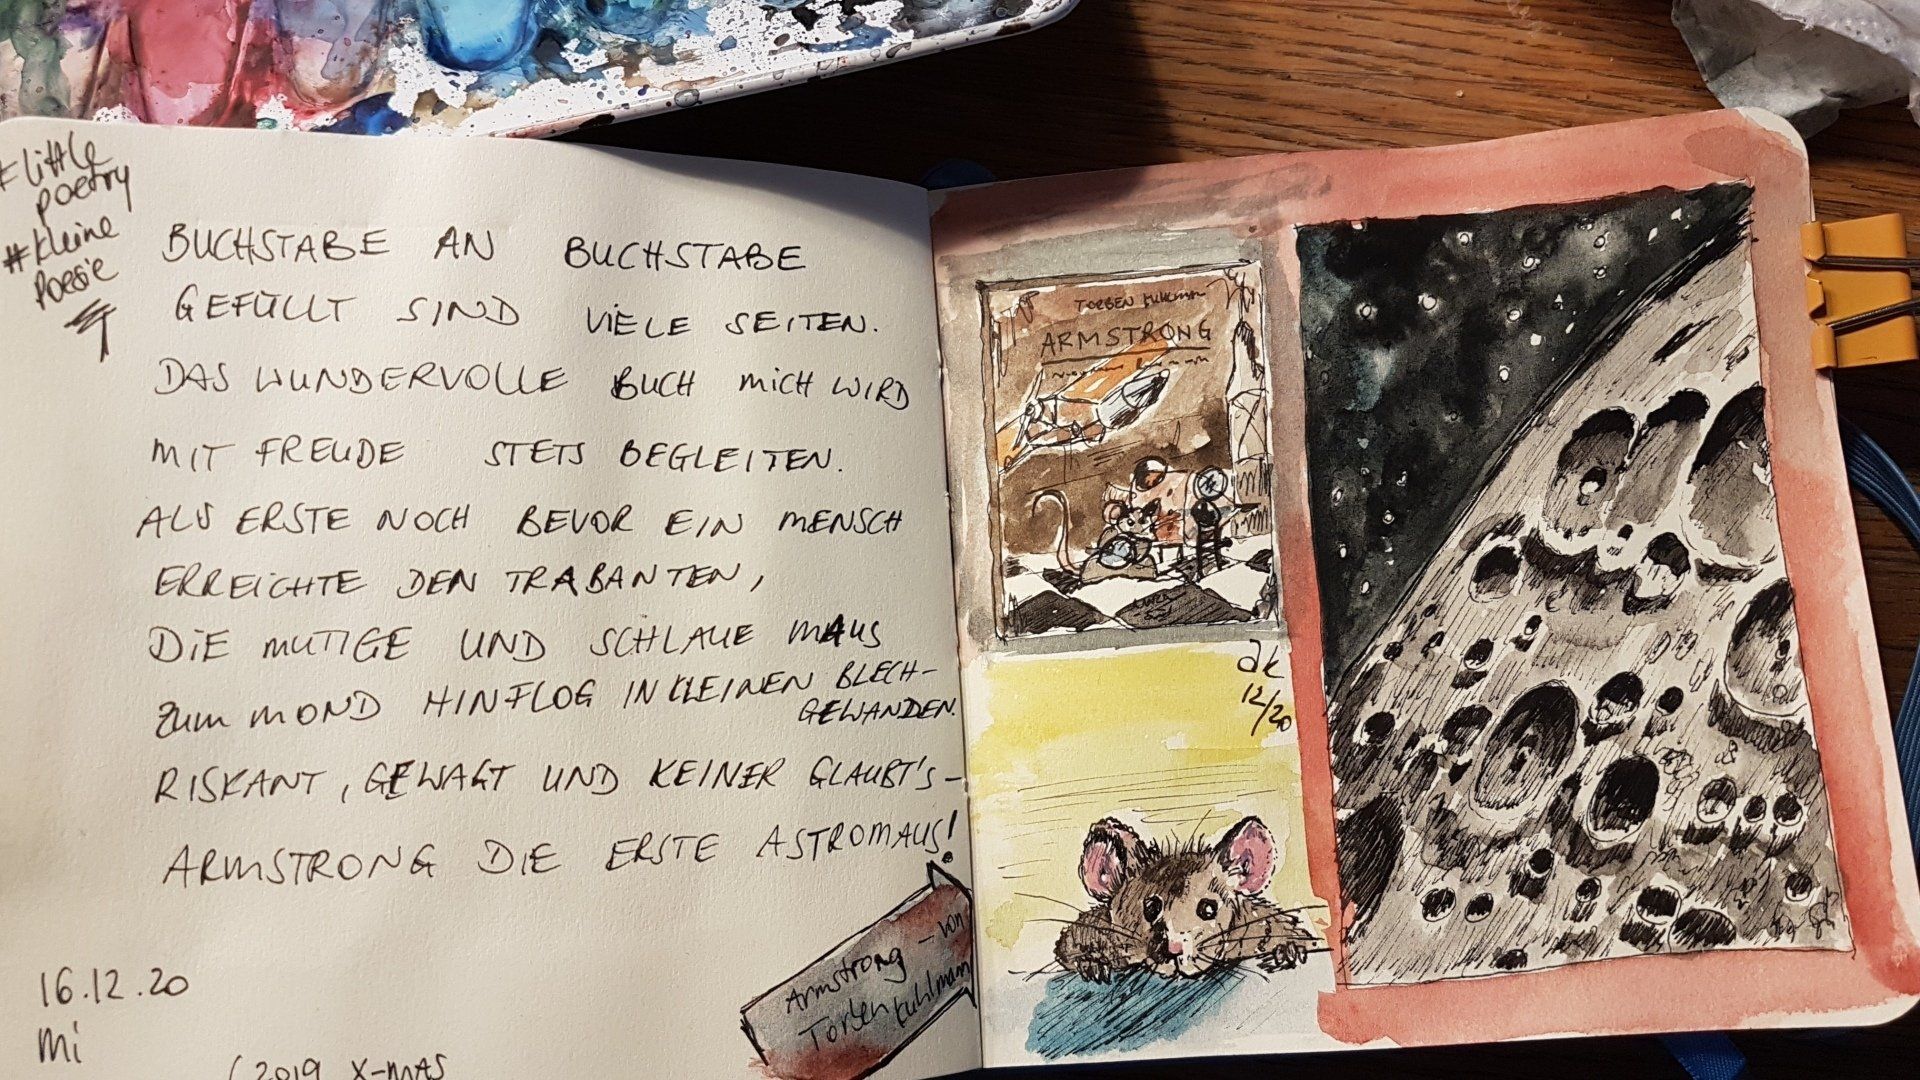 #little
poetry
#kleine
Poesie
BUCHSTABE AN BUCHSTABE
GEFÜLLT SIND VIELE SEITEN.
DAS WUNDERVOLLE BUCH MICH WIRD
MIT FREUDE STETS BEGLEITEN.
ALS ERSTE NOCH BEVOR EIN MENSCH
ERREICHTE DEN TRABANTEN,
DIE MUTIGE UND SCHLAUE MAUS
ZUM MOND HINFLOG IN KLEINEN BLECH-
GEWANDEN.
RISKANT, GEWAGT UND KEINER GLAUBT'S-
ARMSTRONG DIE ERSTE ASTROMAUS!
Armstrong - von
Torben Kuhlmann
16.12.20
Mi
(2019 X-MAS
TORBEN Kuhlmann
ARMSTRONG
ak
12/20